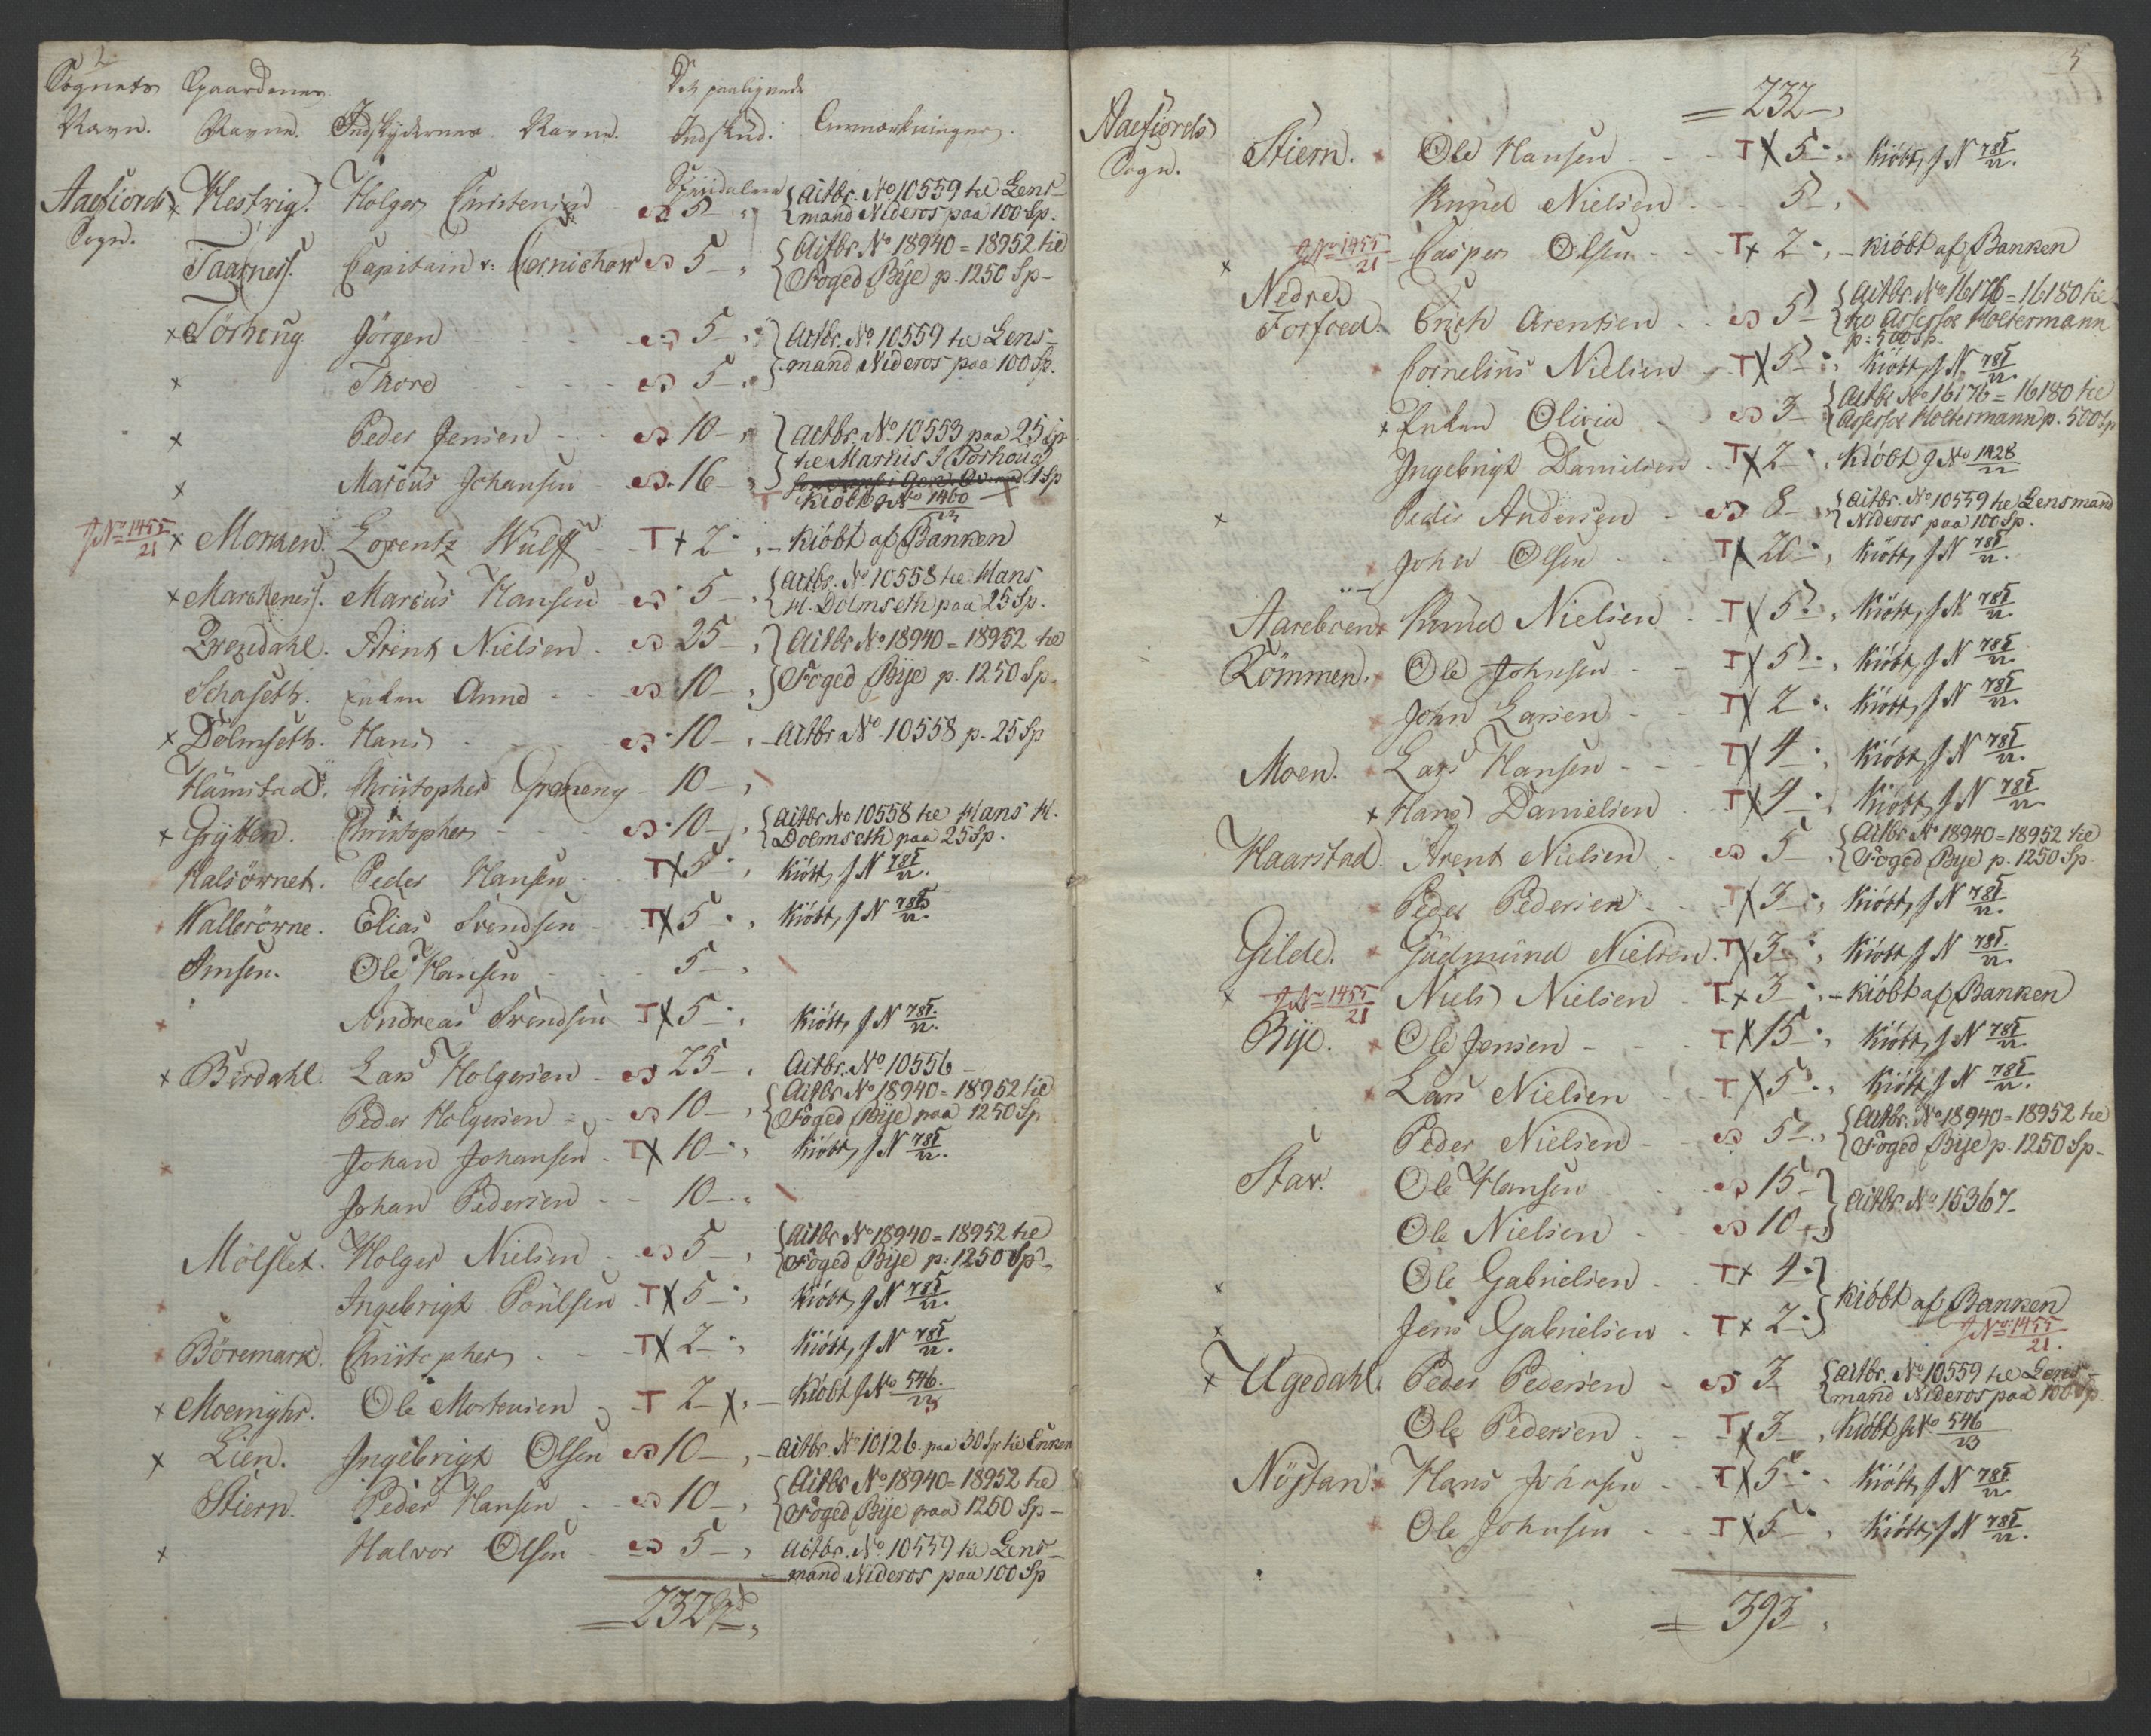 Sognets Gaardenes Det paalignede
Navn. Navne. Indskydernes Navne. Indskud. Anmærkninger.
Speciedaler
Aaefiords × Hestvig. Holger Christensen 5 – { Actbr. No 10559 til Lens-
Sogn. mand Nideros paa 100 Sp.
Taarness. Capitain v. Cernichow 5 – { Actbr. No 18940 = 18952 til
Foged Bÿe p. 1250 Sp –
× Tørhoug. Jörgen 5 – } Actbr. No 10559 til Lens-
× Thore 5 – } mand Nideros paa 100 Sp.
× Peder Jensen 10 – } Actbr. No 10553 paa 25 Sp
til Marius J. Torhoug
× Marcus Johansen 16 – 1 Sp
T Kiöbt J No 1460/23
J No 1455/21 × Morken. Lorentz Wulff T × 2 – Kiöbt af Banken
× Marckeness. Marcus Hansen 5 – { Actbr. No 10558 til Hans
H. Dolmseth paa 25 Sp.
Qvendahl. Arent Nielsen 25 – } Actbr No 18940 = 18952 til
Schaseth. Enken Anne 10 – } Foged Bÿe p. 1250 Sp.
× Dolmseth. Hans 10 – Actbr No 10558 p. 25 Sp
Hamstad. Christopher Grameng 10 –
× Grÿtten. Christopher 10 – { Actbr No 10558 til Hans H.
Dolmseth paa 25 Sp.
Halsörnet. Peder Hansen T × 5 – Kiöbt, J N 785/22.
Vallersörne. Elias Svendsen T × 5 – Kiöbt, J N 785/22.
Imsen. Ole Hansen 5 –
× Andreas Svendsen T × 5 – Kiöbt J N 785/22.
× Berdahl. Lars Holgersen 25 – Actbr. No 10556 –
Peder Holgersen 10 – { Actbr No 18940 = 18952 til
Foged Bÿe paa 1250 Sp
× Johan Johansen T × 10 – Kiöbt, J N 785/22.
Johan Pedersen 10 –
Mölslet. Holger Nielsen 5 – { Actbr No 18940 = 18952 til
Foged Bÿe p. 1250 Sp –
Ingebrigt Poulsen T × 5 – Kiöbt, J N 785/22.
Böremark. Christopher T × 2 – Kiöbt, J N 785/22.
× Moemÿhr. Ole Mortensen T 2 – × – Kiöbt J No 546/23
× Lien. Ingebrigt Olsen 10 – Actbr. No 10126. paa 30 Sp til Enken
Stiern. Peder Hansen 10 – { Actbr No 18940 = 18952 til
Foged Bÿe paa 1250 Sp –
× Halvor Olsen 5 – Actbr. No 10559 til Lens-
mand Nideros paa 100 Sp
= 232
5
= 232 –
Aaefiords Stiern. Ole Hansen T × 5 – Kiöbt, J N 785/22.
Sogn. Knud Nielsen 5 –
× J No 1455/21 Casper Olsen T × 2 – Kiöbt af Banken
Nedre
Forfoed. Erich Arentsen 5 – { Actbr. No 16176 = 16180 til
Assessor Holtermann
p. 500 Sp.
Cornelius Nielsen T × 5 – Kiöbt, J N 785/22.
× Enken Olivia 3 – { Actbr No 16176 = 16180 til
Assessor Holtermann p. 500 Sp
Ingebrigt Danielsen T × 2 – Kiöbt J No 1428/22
× Peder Andersen 8 – { Actbr. No 10559 til Lensmand
Nideros paa 100 Sp.
John Olsen T × 20 – Kiöbt, J N 785/22.
Aareboen Knud Nielsen T × 5 – Kiöbt, J N 785/22.
Römmen. Ole Johnsen T × 5 – Kiöbt, J N 785/22.
John Larsen T × 2 – Kiöbt, J N 785/22.
Moen. Lars Hansen T × 4 – Kiöbt, J N 785/22.
× Hans Danielsen T × 4 – Kiöbt, J N 785/22.
Haarstad. Arent Nielsen 5 – { Actbr No 18940 = 18952 til
Foged Bye p. 1250 Sp
Peder Pedersen T × 3 – Kiöbt, J N 785/22.
Gilde. Gudmund Nielsen T × 3 – Kiöbt, J N 785/22.
× J No 1455/21 Niels Nielsen T × 3 – Kiöbt af Banken
Bÿe. Ole Jensen T × 15 – Kiöbt, J N 785/22.
Lars Nielsen T × 5 – Kiöbt, J N 785/22.
Peder Nielsen 5 – { Actbr. No 18940 = 18952 til
Foged Bye p. 1250 Sp –
Stav. Ole Hansen 15 – } Actbr No 15367 –
Ole Nielsen 10 – }
× Ole Gabrielsen T × 4 – }
Kiöbt af Banken
× Jens Gabrielsen T × 2 – } J No 1455/21.
× Ugedahl. Peder Pedersen 3 – { Actbr. No 10559 til Lens-
mand Nideros paa 100 Sp.
Ole Pedersen T × 3 – Kiöbt J No 546/23
Nöstan. Hans Johnsen T × 5 – Kiöbt, J N 785/22.
Ole Johnsen T × 5 – Kiöbt, J N 785/22.
= 393 –